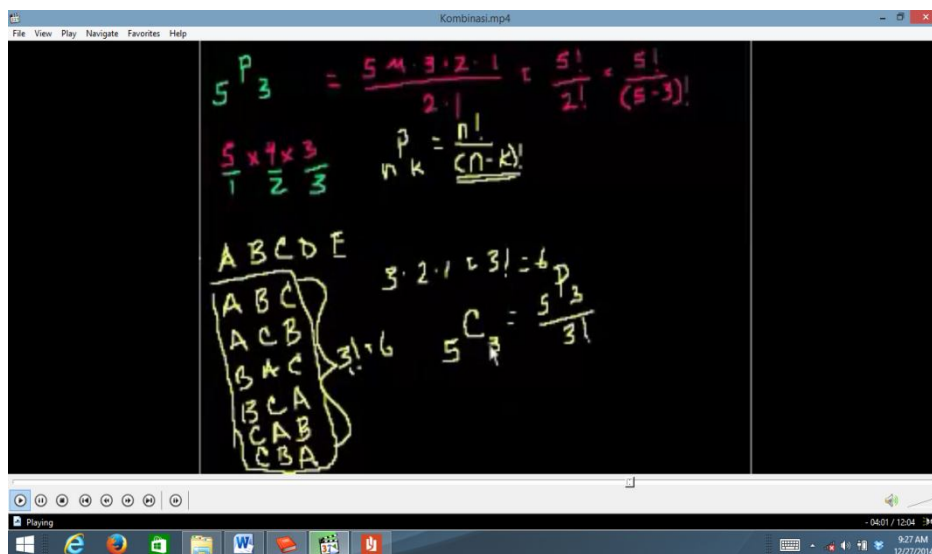 Kombinasi.mp4
File View Play Navigate Favorites Help
5P3 = 5·4·3·2·1 / 2·1 = 5! / 2! = 5! / (5-3)!
5/1 x 4/2 x 3/3
nPk = n! / (n-k)!
A B C D E
3·2·1 = 3! = 6
A B C
A C B
B A C
B C A
C A B
C B A
3! = 6
5C3 = 5P3 / 3!
Playing
- 04:01 / 12:04
9:27 AM